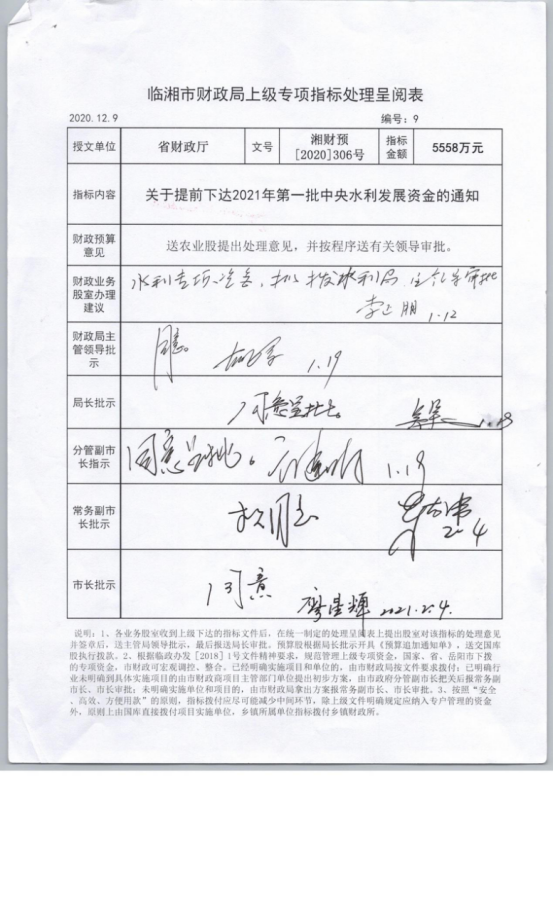 临湘市财政局上级专项指标处理呈阅表
2020.12.9 编号：9
授文单位 省财政厅 文号 湘财预[2020]306号 指标金额 5558万元
指标内容 关于提前下达2021年第一批中央水利发展资金的通知
财政预算意见 送农业股提出处理意见，并按程序送有关领导审批。
财政业务股室办理建议 水利专项资金，拟拨水利局
1.12
财政局主管领导批示 同意。 1.19
局长批示 同意呈批。
分管副市长指示 同意呈批。 1.19
常务副市长批示 拟同意 2.4
市长批示 同意 2021.2.4.
说明：1、各业务股室收到上级下达的指标文件后，在统一制定的处理呈阅表上提出股室对该指标的处理意见
并签章后，送主管局领导批示，最后报送局长审批。预算股根据局长批示开具《预算追加通知单》，送交国库
股执行拨款。2、根据临政办发[2018]1号文件精神要求，规范管理上级专项资金，国家、省、岳阳市下拨
的专项资金，市财政可宏观调控、整合，已经明确实施项目和单位的，由市财政局按文件要求拨付；已明确行
业未明确到具体实施项目的由市财政商项目主管部门单位提出初步方案，由市政府分管副市长把关后报常务副
市长、市长审批；未明确实施单位和项目的，由市财政局拿出方案报常务副市长、市长审批。3、按照“安全
、高效、方便用款”的原则，指标拨付应尽可能减少中间环节，除上级文件明确规定应纳入专户管理的资金
外，原则上由国库直接拨付项目实施单位，乡镇所属单位指标拨付乡镇财政所。